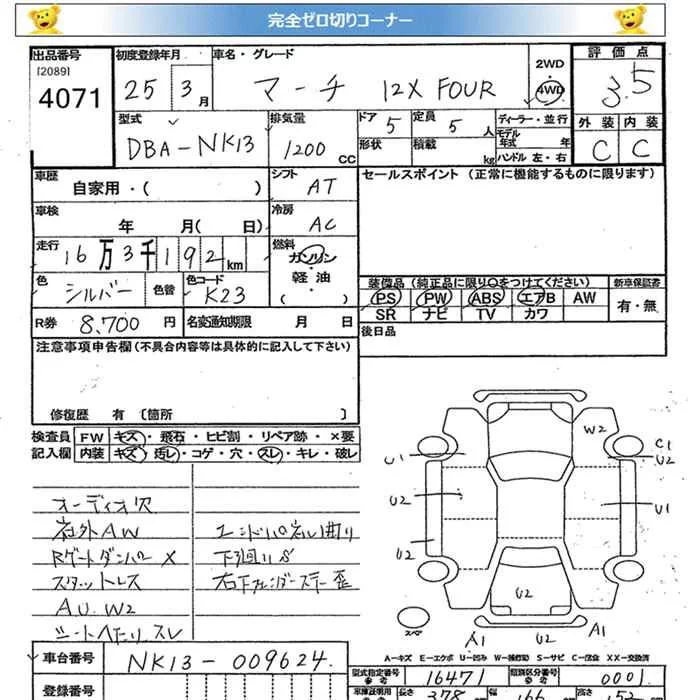 完全ゼロ切りコーナー
出品番号 [2089] 4071
初度登録年月 25 3月
車名・グレード マーチ 12X FOUR
2WD 4WD
評価点 3.5
型式 DBA-NK13
排気量 1200 CC
ドア 5 定員 5 人
形状 積載 kg
ディーラー・並行
モデル年式 年
ハンドル 左・右
外装 内装
C C
車歴 自家用・( )
シフト AT
セールスポイント (正常に機能するものに限ります)
車検 年 月( 日)
冷房 AC
走行 16万3千192km
燃料 ガソリン・軽油 ( )
色 シルバー 色替 色コード K23
装備品 (純正品に限り○をつけてください)
新車保証書
PS PW ABS エアB AW
有・無
SR ナビ TV カワ
R券 8,700 円 名変通知期限 月 日
後日品
注意事項申告欄 (不具合内容等は具体的に記入して下さい)
修復歴 有 [箇所 ]
検査員 FW キズ・飛石・ヒビ割・リペア跡・×要
記入欄 内装 キズ・汚レ・コゲ・穴・スレ・キレ・破レ
オーディオ欠
社外AW エンドパネル曲り
Rゲートダンパー X 下廻りS
スタットレス 右下フェンダーステー歪
AU.W2
シートへたり.スレ
W2
U1 C1 U2
U2 U1
U2
U2
スペア A1 U2 A1
A-キズ E-エクボ U-凹み W-補修跡 S-サビ C-腐食 XX-交換済
車台番号 NK13-009624
型式指定番号 参考 16471 類別区分番号 参考 0001
登録番号
車庫証明用 参考 長さ 378 幅 166 高さ 152